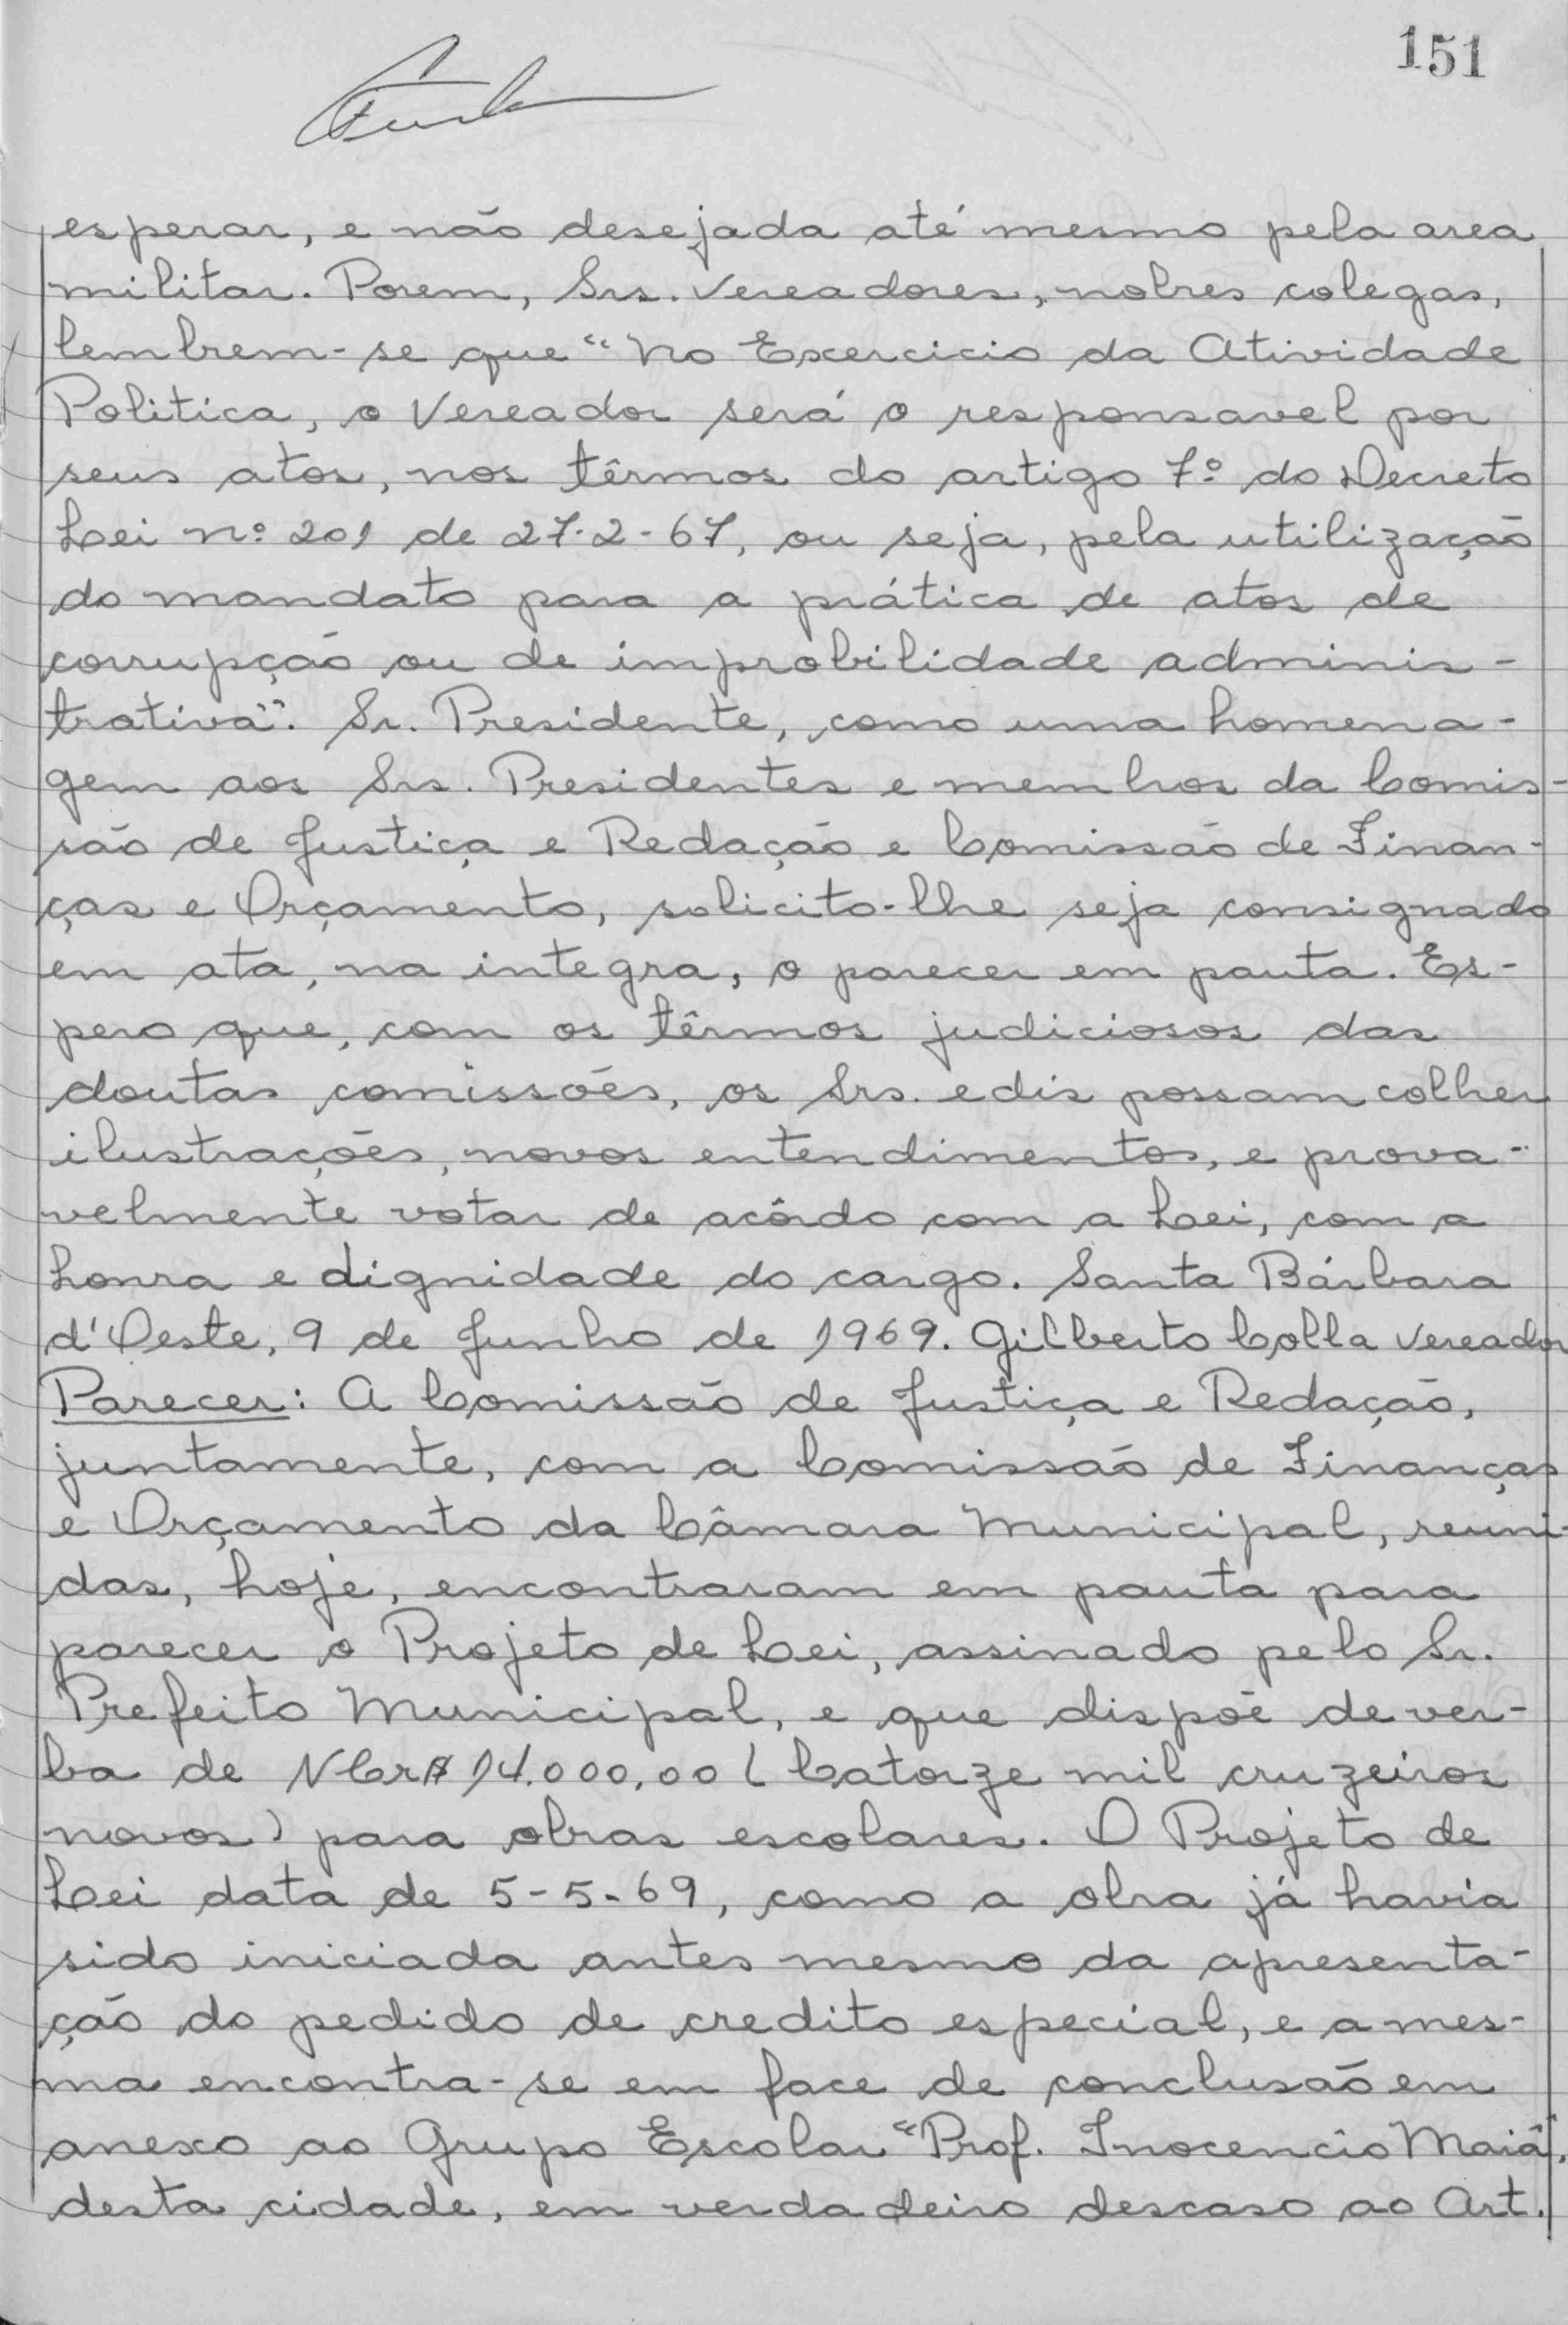 151
esperar, e não desejada até mesmo pela area
militar. Porem, Srs. Vereadores, nobres colegas,
lembrem-se que "No Exercicio da Atividade
Politica, o Vereador será o responsavel por
seus atos, nos têrmos do artigo 7º do Decreto
Lei nº 201 de 27-2-67, ou seja, pela utilização
do mandato para a prática de atos de
corrupção ou de improbilidade adminis-
trativa". Sr. Presidente, como uma homena-
gem aos Srs. Presidentes e membros da Comis-
são de Justiça e Redação e Comissão de Finan-
ças e Orçamento, solicito-lhe seja consignado
em ata, na integra, o parecer em pauta. Es-
pero que, com os têrmos judiciosos das
doutas comissões, os Srs. edis possam colher
ilustrações, novos entendimentos, e prova-
velmente votar de acôrdo com a Lei, com a
honra e dignidade do cargo. Santa Bárbara
d'Oeste, 9 de Junho de 1969. Gilberto Colla Vereador
Parecer: A Comissão de Justiça e Redação,
juntamente, com a Comissão de Finanças
e Orçamento da Câmara Municipal, reuni-
das, hoje, encontraram em pauta para
parecer o Projeto de Lei, assinado pelo Sr.
Prefeito Municipal, e que dispõe de ver-
ba de NCr$ 14.000,00 (Catorze mil cruzeiros
novos) para obras escolares. O Projeto de
Lei data de 5-5-69, como a obra já havia
sido iniciada antes mesmo da apresenta-
ção do pedido de credito especial, e a mes-
ma encontra-se em face de conclusão em
anexo ao Grupo Escolar "Prof. Inocencio Maia",
desta cidade, em verdadeiro descaso ao Art.